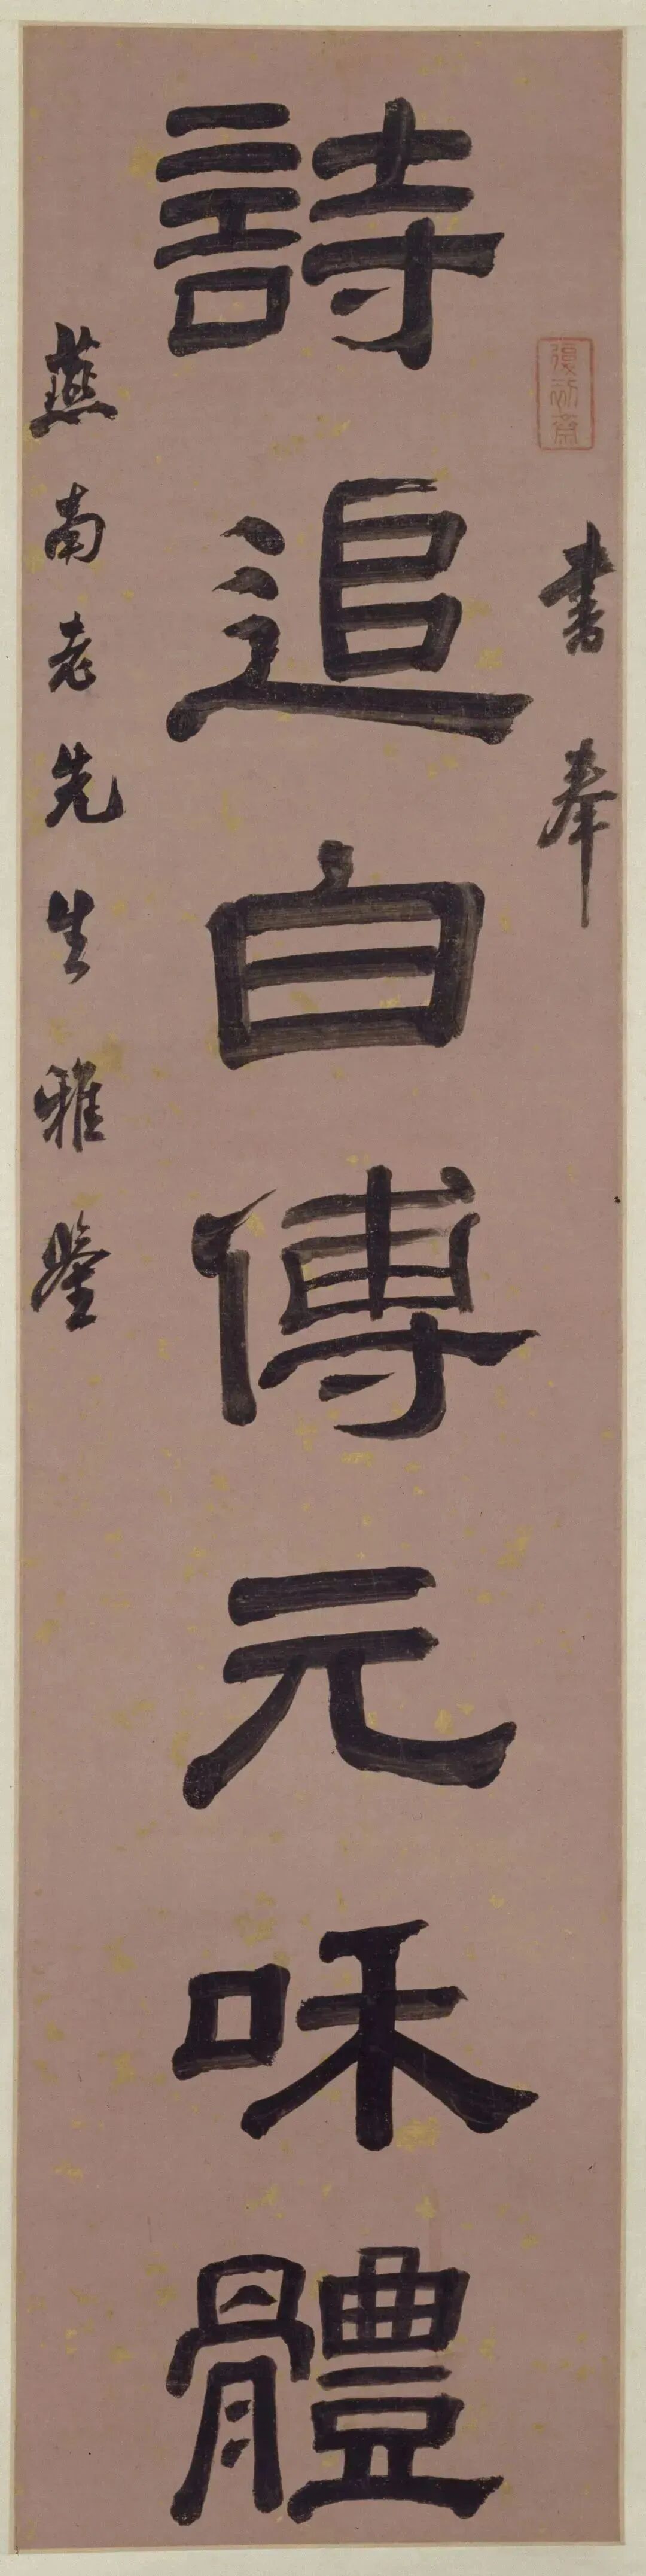 復初齋
書奉
詩追白傅元咊體
燕南老先生雅鑒